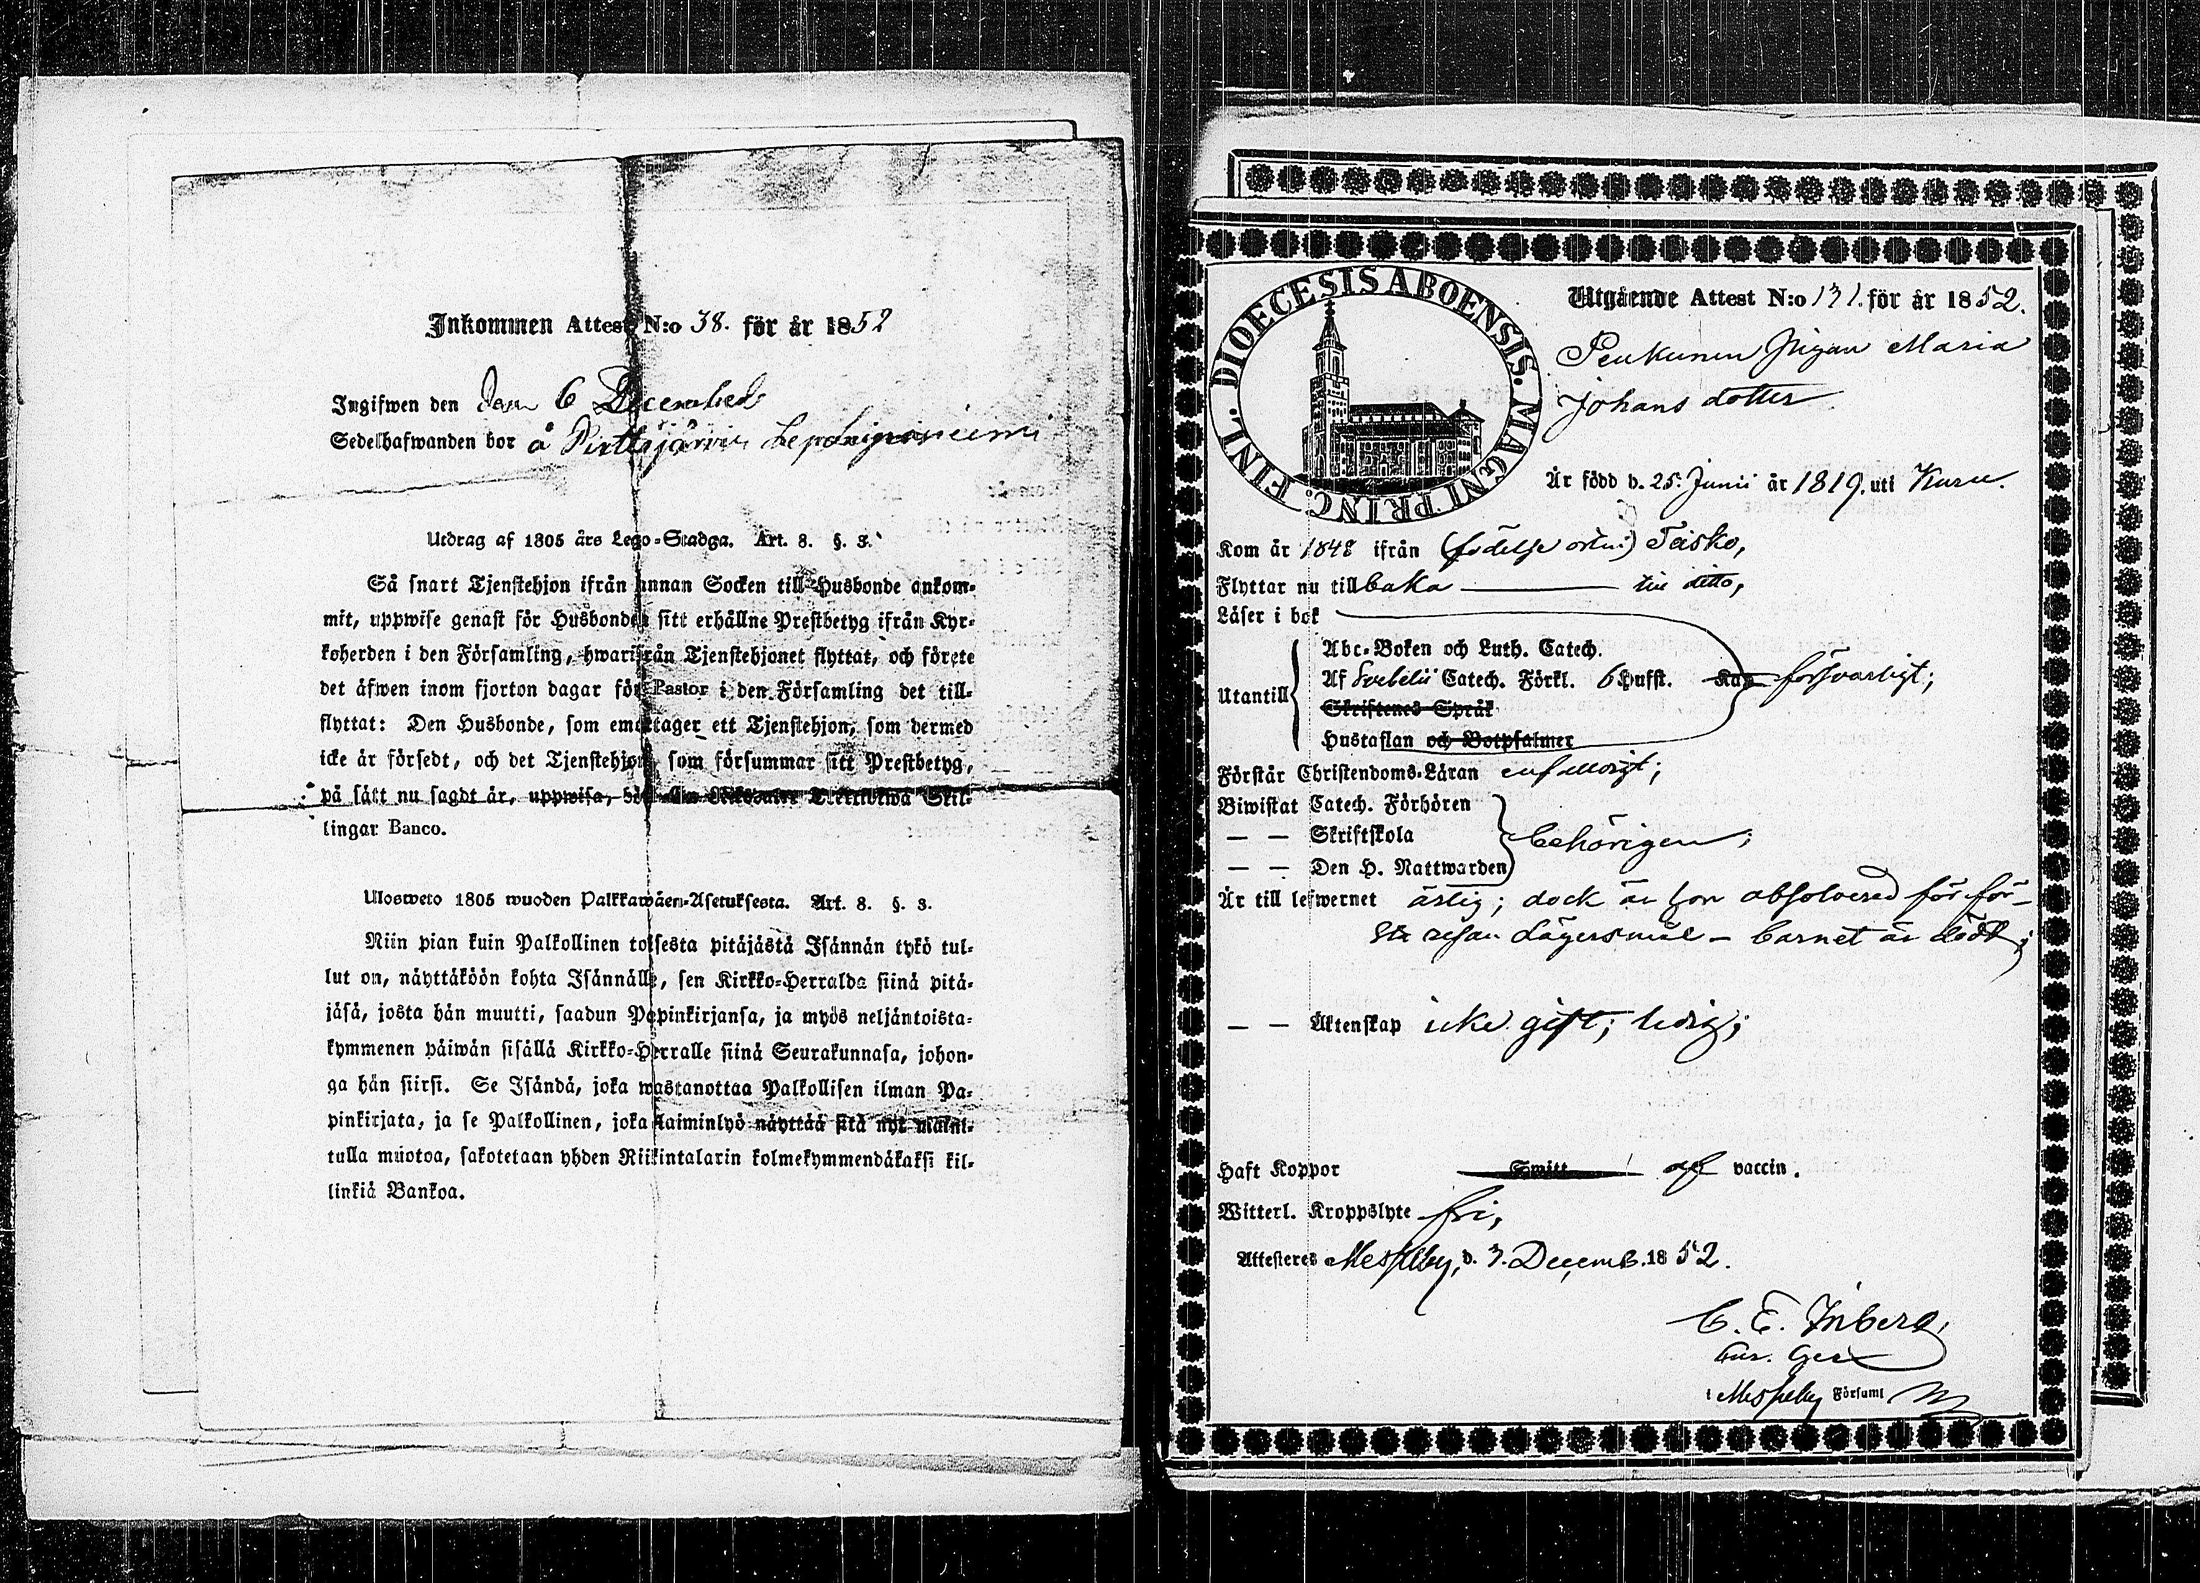 Inkommen Attest N:o 38. för år 1852
Ingifwen den den 6 December
Sedelhafwanden bor å Pirttijärvi
Utdrag af 1805 års Lego-Stadga. Art. 8. §. 3.
Så snart Tjenstehjon ifrån annan Socken till Husbonde ankom-
mit, uppwise genast för Husbonden sitt erhållne Prestbetyg ifrån Kyr-
koherden i den Församling, hwarifrån Tjenstehjonet flyttat, och förete
det äfwen inom fjorton dagar för Pastor i den Församling det till-
flyttat: Den Husbonde, som emottager ett Tjenstehjon, som dermed
icke är försedt, och det Tjenstehjon, som försummar sitt Prestbetyg,
på sätt nu sagdt är, uppwisa, Skil-
lingar Banco.
Ulosweto 1805 wuoden Palkkawäen-Asetuksesta. Art. 8. §. 3.
Niin pian kuin Palkollinen toisesta pitäjästä Isännän tykö tul-
lut on, näyttäköön kohta Isännälle, sen Kirkko-Herralda siinä pitä-
jäsä, josta hän muutti, saadun Papinkirjansa, ja myös neljäntoista-
kymmenen päiwän sisällä Kirkko-Herralle siinä Seurakunnasa, johon-
ga hän siirsi. Se Isändä, joka wastanottaa Palkollisen ilman Pa-
pinkirjata, ja se Palkollinen, joka laiminlyö näyttää sitä nyt maini-
tulla muotoa, sakotetaan yhden Riikintalarin kolmekymmendäkaksi kil-
linkiä Bankoa.
DIOECESIS ABOENSIS. MAGNI PRINC. FINL.
Utgående Attest N:o 131. för år 1852.
Pigan Maria
Johans dotter
Är född d. 25. Junii år 1819. uti Kuru.
Kom år 1848 ifrån (födelse orten) Teisko,
Flyttar nu tillbaka till ditto,
Läser i bok
Abc-Boken och Luth. Catech.
Utantill Af Svebelii Catech. Förkl. 6 Hufst. Kap försvarligt;
Skriftenes Språk
Hustaflan och Botpsalmer
Förstår Christendoms-Läran enfalldigt;
Biwistat Catech. Förhören
— — Skriftskola behörigen;
— — Den H. Nattwarden
Är till lefwernet ärlig; dock är hon absolverad för för-
sta resan Lägersmål – barnet är dödt;
— — Äktenskap icke gift; ledig;
Haft Koppor Smitt af vaccin.
Witterl. Kroppslyte fri,
Attesteres Messuby, d. 3. Decemb. 1852.
C. E. Inberg,
i Messuby Församl